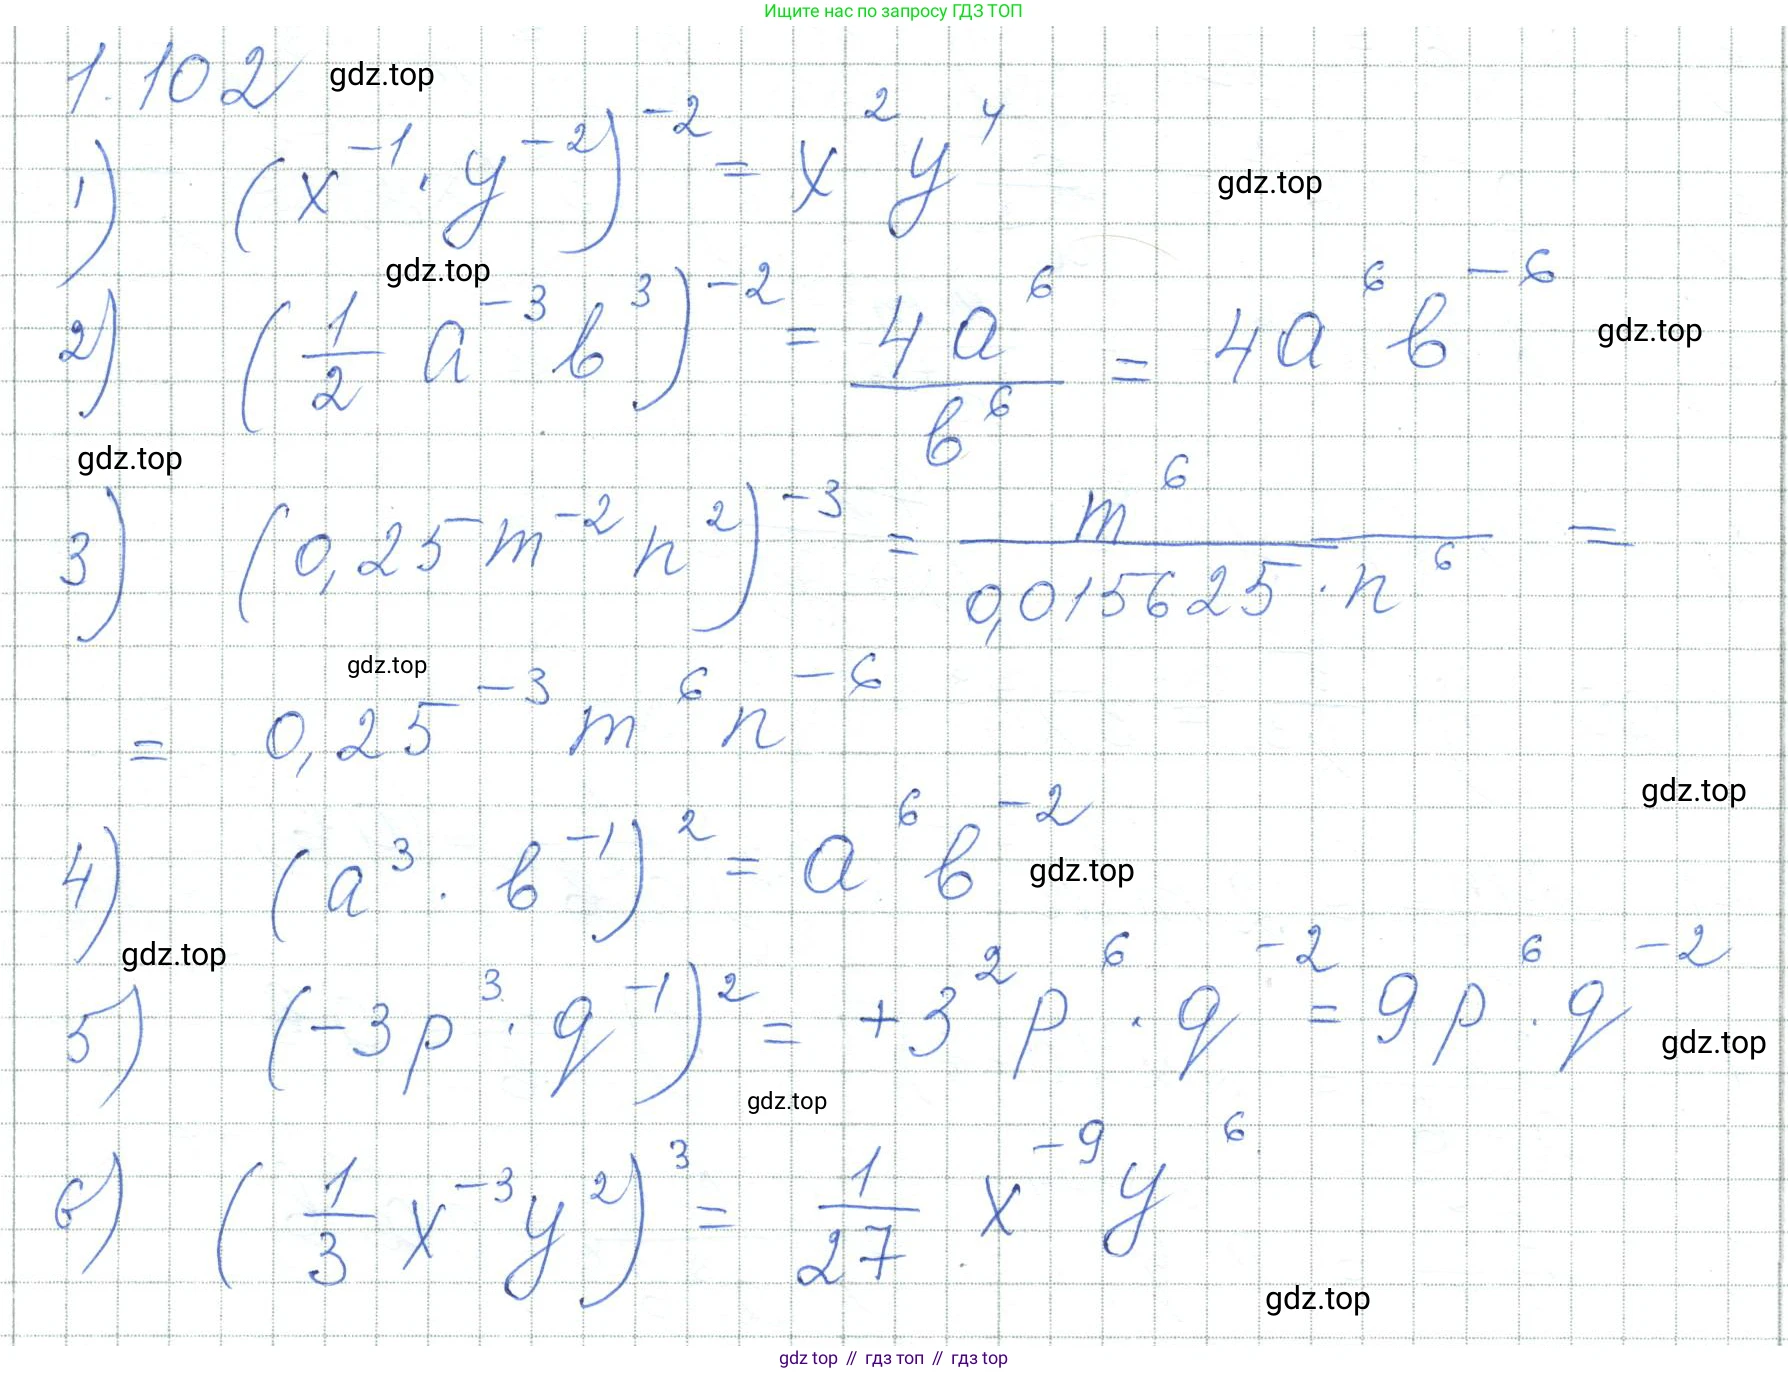 Ищите нас по запросу ГДЗ ТОП
1.102 gdz.top
1) (x⁻¹ · y⁻²)⁻² = x² y⁴ gdz.top
gdz.top
2) (1/2 a⁻³ b³)⁻² = 4a⁶/b⁶ = 4a⁶ b⁻⁶ gdz.top
gdz.top
3) (0,25 m⁻² n²)⁻³ = m⁶/(0,015625 · n⁶) =
gdz.top
= 0,25⁻³ m⁶ n⁻⁶
gdz.top
4) (a³ · b⁻¹)² = a⁶ b⁻² gdz.top
gdz.top
5) (-3p³ · q⁻¹)² = +3² p⁶ · q⁻² = 9p⁶ · q⁻² gdz.top
gdz.top
6) (1/3 x⁻³ y²)³ = 1/27 x⁻⁹ y⁶
gdz.top
gdz top // гдз топ // гдз top